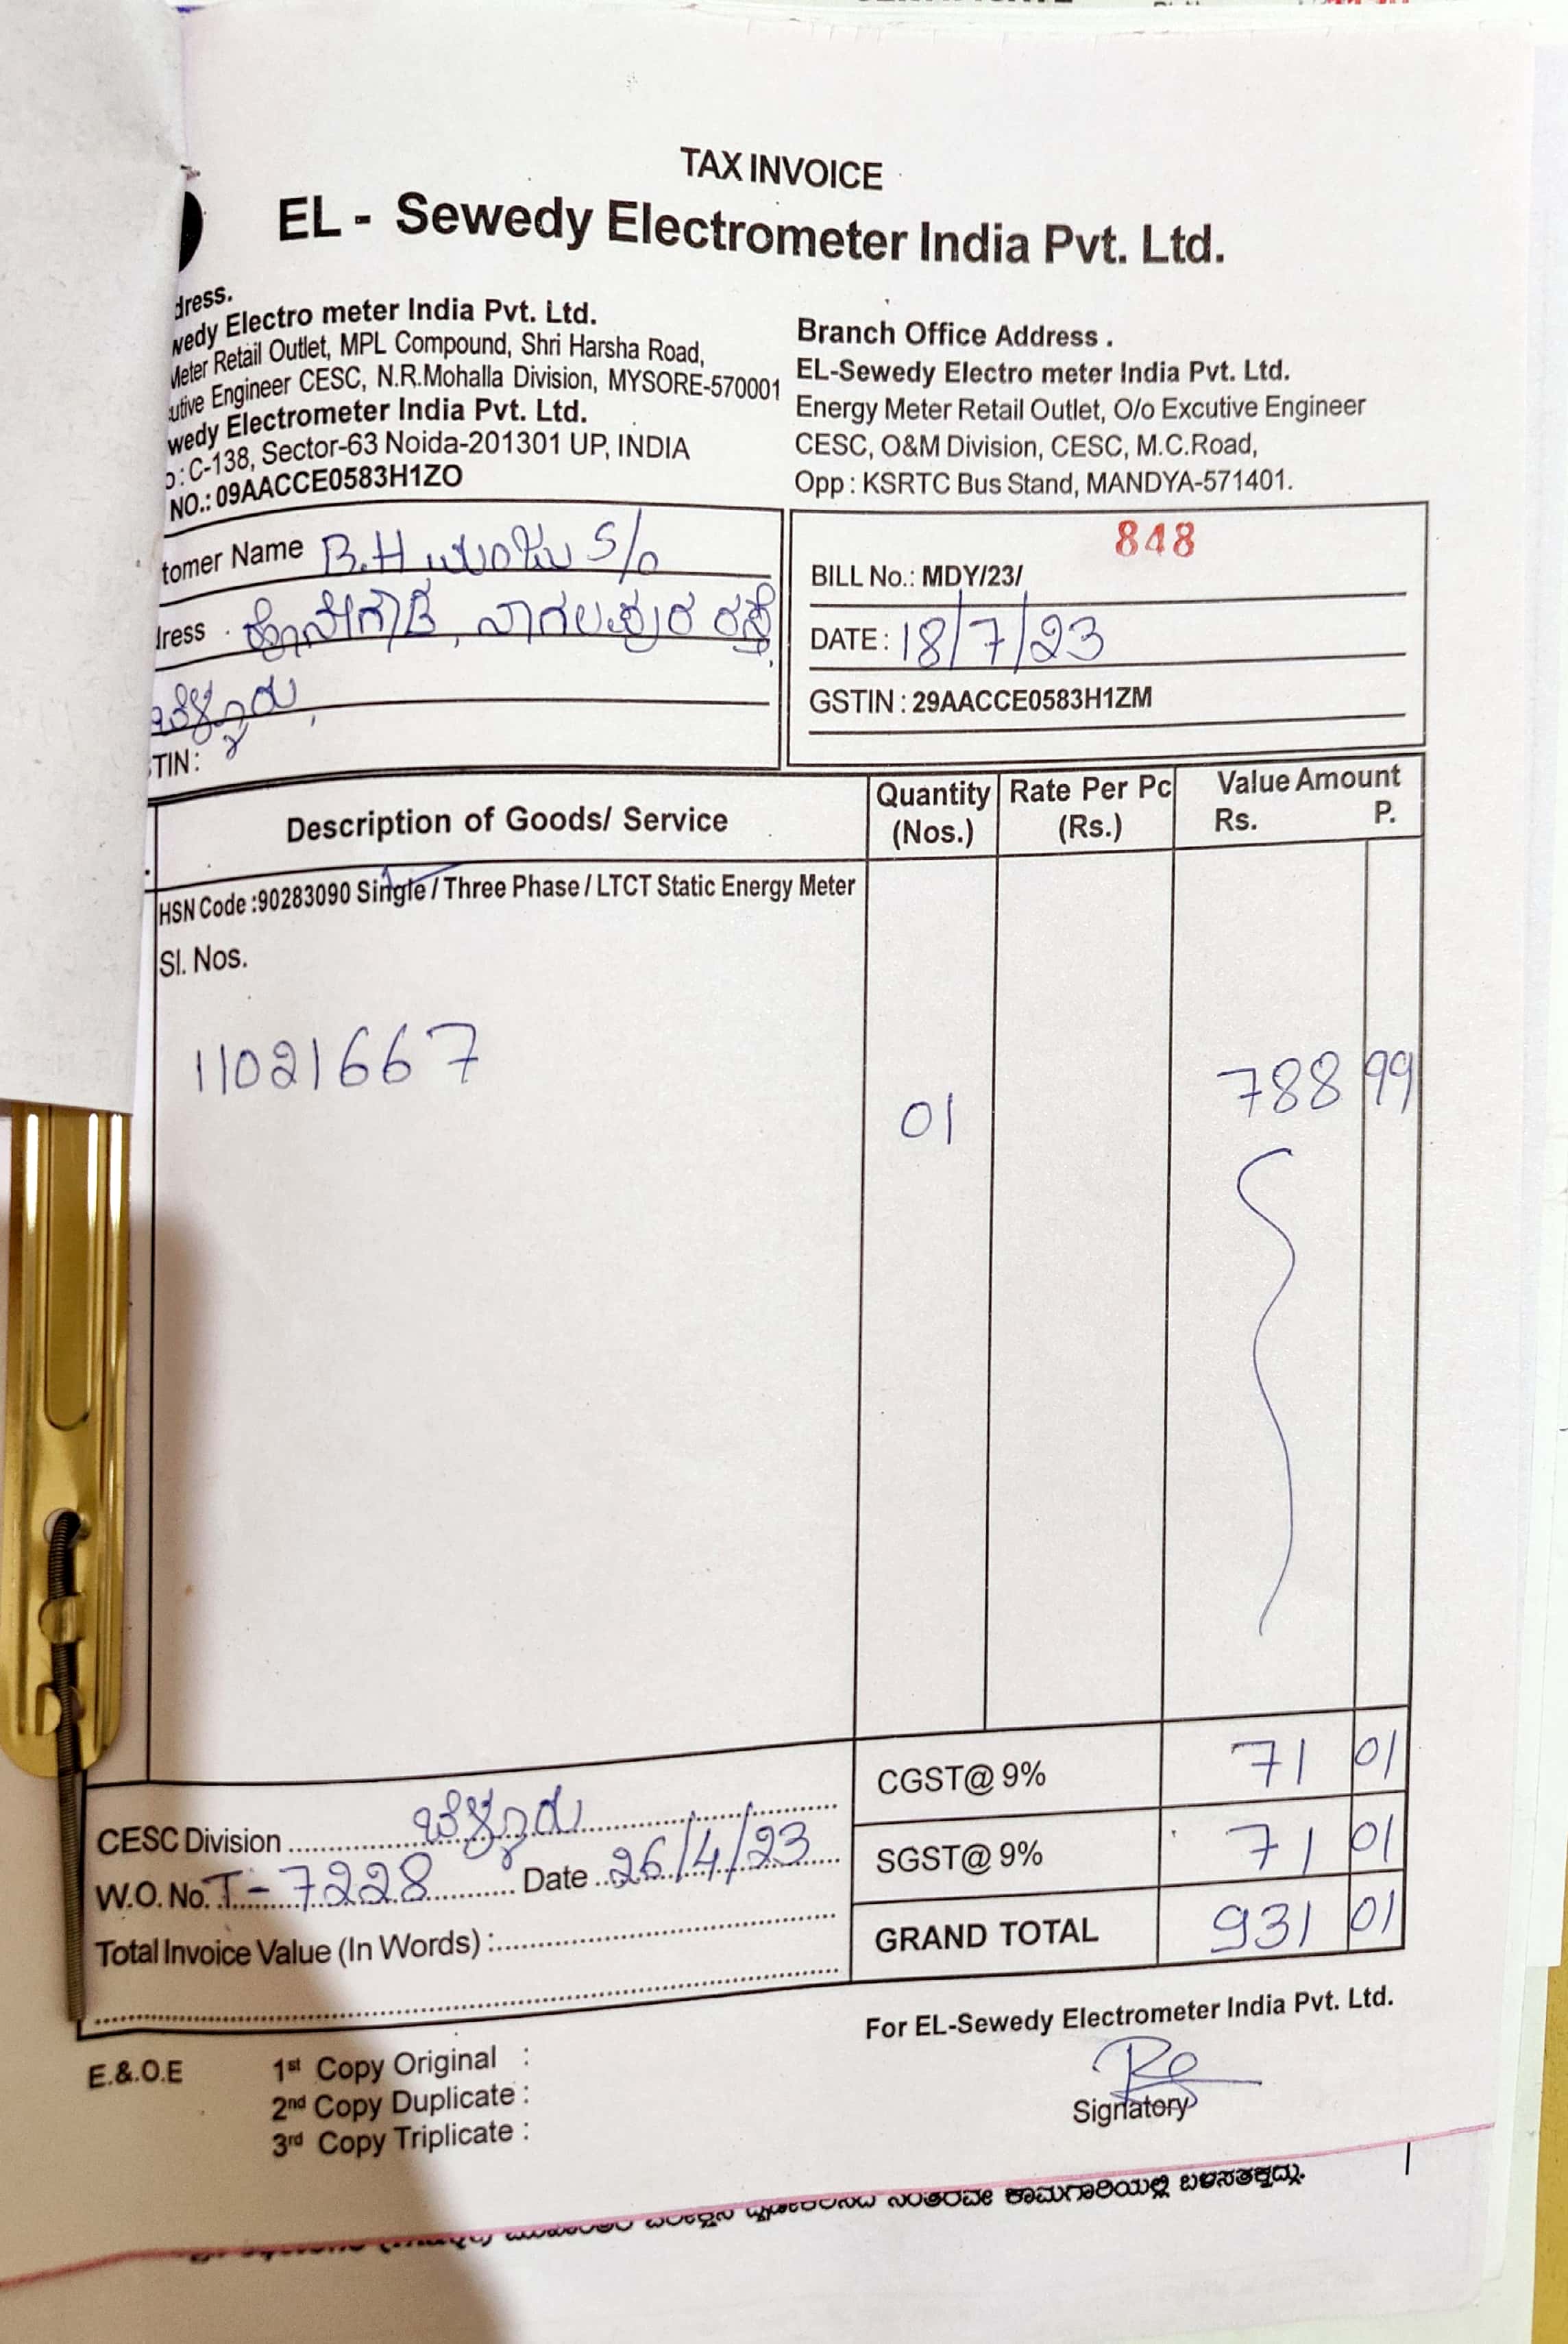 TAX INVOICE
EL - Sewedy Electrometer India Pvt. Ltd.
dress.
wedy Electro meter India Pvt. Ltd.
Meter Retail Outlet, MPL Compound, Shri Harsha Road,
utive Engineer CESC, N.R.Mohalla Division, MYSORE-570001
wedy Electrometer India Pvt. Ltd.
o : C-138, Sector-63 Noida-201301 UP, INDIA
NO.: 09AACCE0583H1ZO
Branch Office Address .
EL-Sewedy Electro meter India Pvt. Ltd.
Energy Meter Retail Outlet, O/o Excutive Engineer
CESC, O&M Division, CESC, M.C.Road,
Opp : KSRTC Bus Stand, MANDYA-571401.
tomer Name B.H ಮಂಜು S/o
dress ಹೊನ್ನೇಗೌಡ, ನಾಗಲಾಪುರ ರಸ್ತೆ,
ಬೆಳ್ಳೂರು,
TIN :
848
BILL No.: MDY/23/
DATE : 18/7/23
GSTIN : 29AACCE0583H1ZM
Description of Goods/ Service Quantity (Nos.) Rate Per Pc (Rs.) Value Amount Rs. P.
HSN Code :90283090 Single / Three Phase / LTCT Static Energy Meter
Sl. Nos.
11021667 01 788 99
CGST@ 9% 71 01
SGST@ 9% 71 01
GRAND TOTAL 931 01
CESC Division ಬೆಳ್ಳೂರು
W.O. No. T-7228 Date 26/4/23
Total Invoice Value (In Words) :
For EL-Sewedy Electrometer India Pvt. Ltd.
Signatory
E.&.O.E
1st Copy Original :
2nd Copy Duplicate :
3rd Copy Triplicate :
ನಂತರವೇ ಕಾಮಗಾರಿಯಲ್ಲಿ ಬಳಸತಕ್ಕದ್ದು.